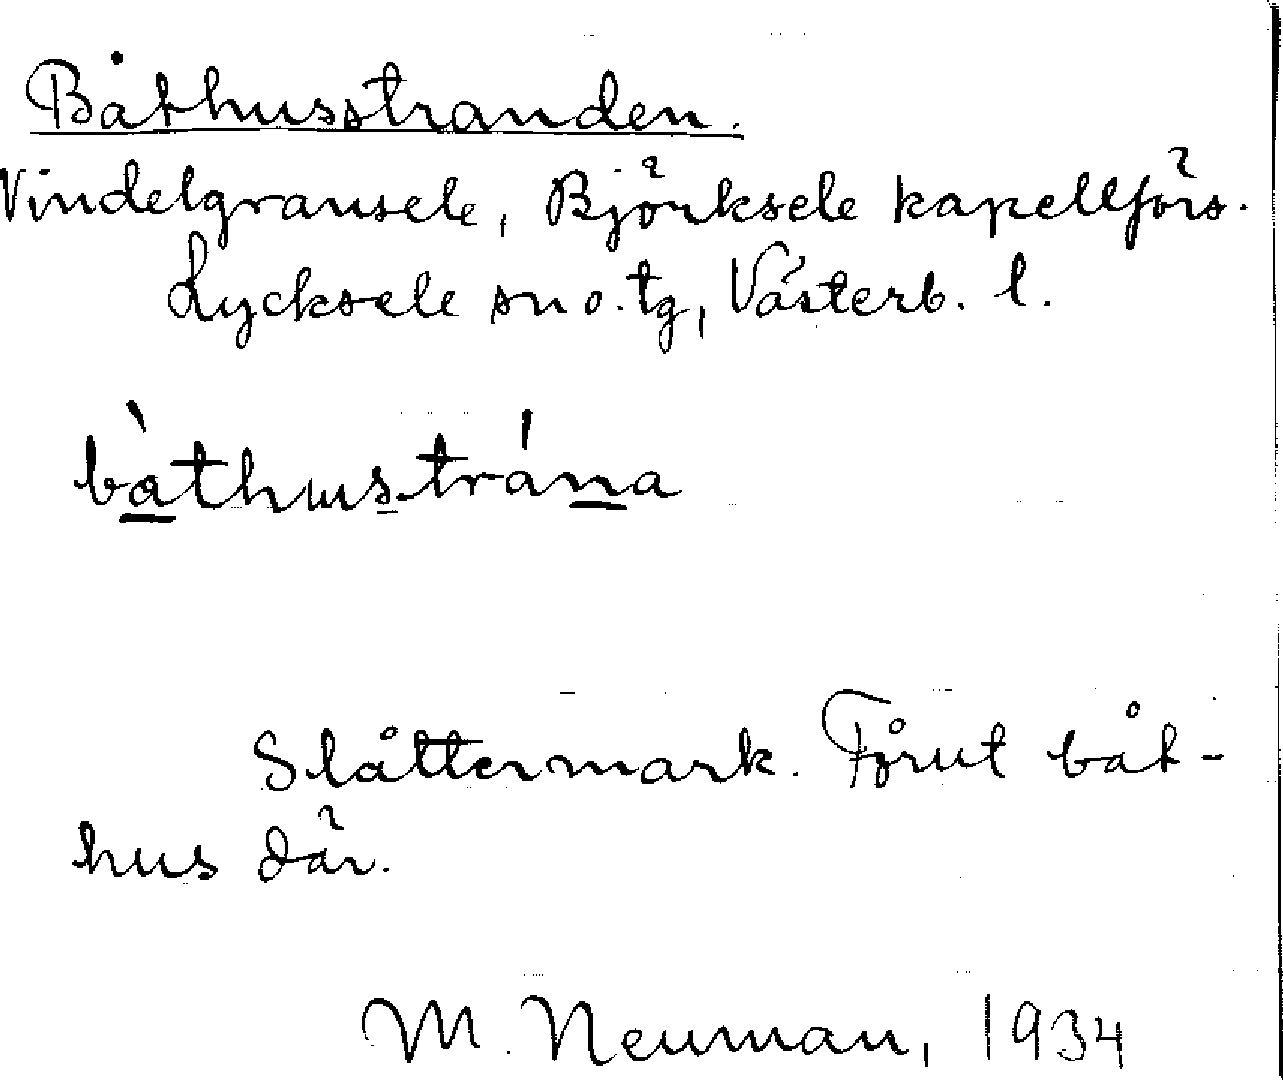 Båthusstranden.
Vindelgransele, Björksele kapellförs.
Lycksele sn o. tg, Västerb. l.
bàthustrána
Slåttermark. Förut båt-
hus där.
M. Neuman, 1934